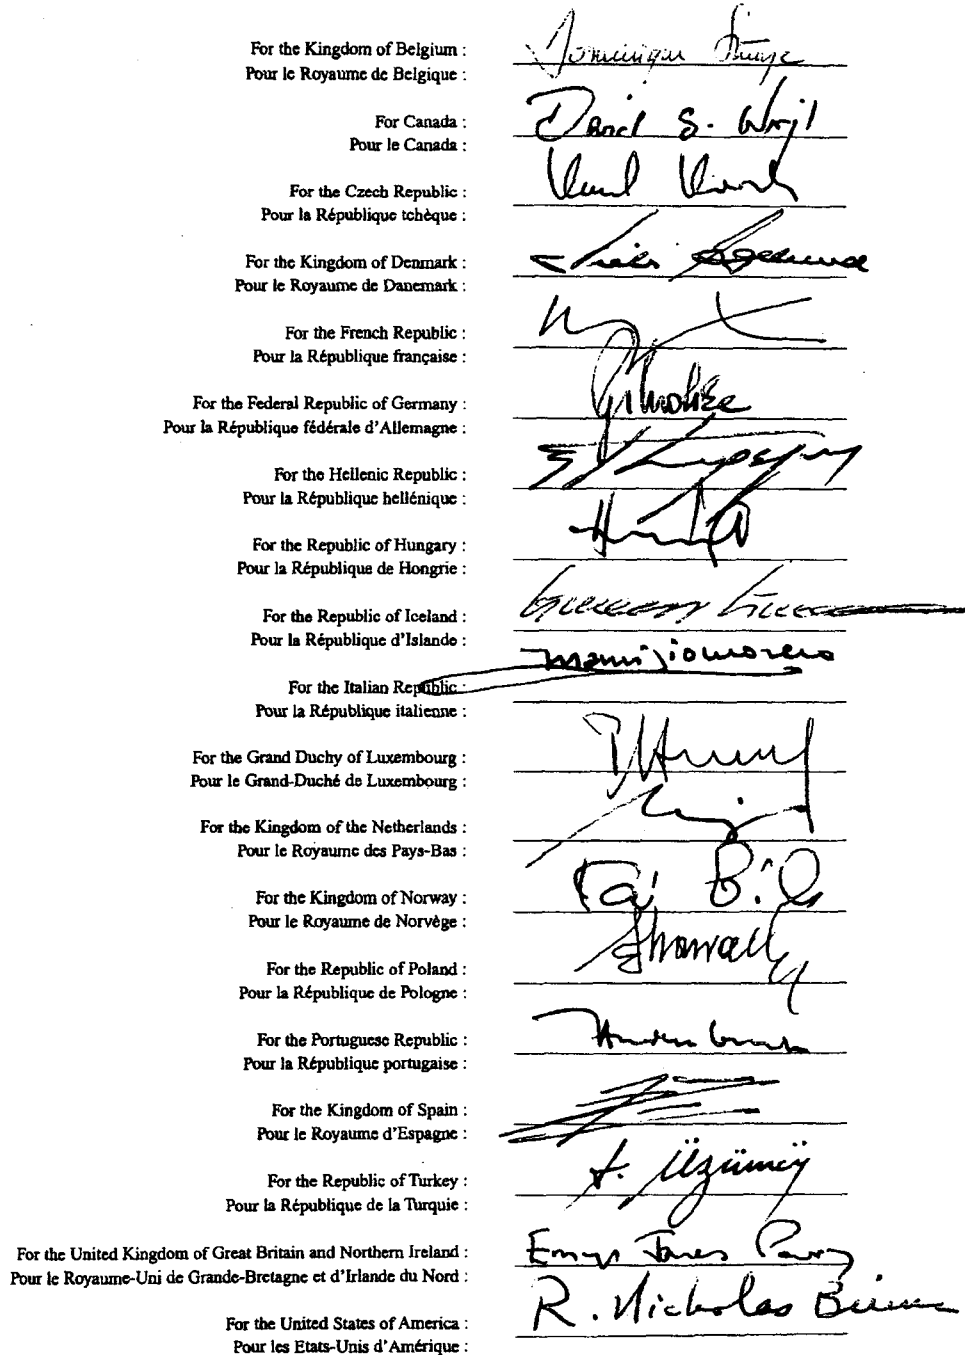 For the Kingdom of Belgium :
Pour le Royaume de Belgique :
Dominique Struye
For Canada :
Pour le Canada :
David S. Wright
For the Czech Republic :
Pour la République tchèque :
For the Kingdom of Denmark :
Pour le Royaume de Danemark :
Niels Egelund
For the French Republic :
Pour la République française :
For the Federal Republic of Germany :
Pour la République fédérale d'Allemagne :
For the Hellenic Republic :
Pour la République hellénique :
For the Republic of Hungary :
Pour la République de Hongrie :
For the Republic of Iceland :
Pour la République d'Islande :
For the Italian Republic :
Pour la République italienne :
For the Grand Duchy of Luxembourg :
Pour le Grand-Duché de Luxembourg :
For the Kingdom of the Netherlands :
Pour le Royaume des Pays-Bas :
For the Kingdom of Norway :
Pour le Royaume de Norvège :
For the Republic of Poland :
Pour la République de Pologne :
For the Portuguese Republic :
Pour la République portugaise :
For the Kingdom of Spain :
Pour le Royaume d'Espagne :
For the Republic of Turkey :
Pour la République de la Turquie :
For the United Kingdom of Great Britain and Northern Ireland :
Pour le Royaume-Uni de Grande-Bretagne et d'Irlande du Nord :
Emyr Jones Parry
For the United States of America :
Pour les Etats-Unis d'Amérique :
R. Nicholas Burns